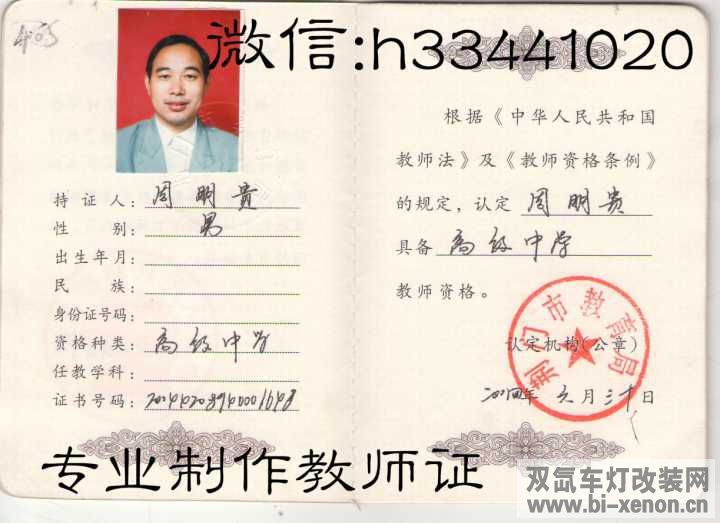 4.05
微信:h33441020
持证人:周明贵
性别:男
出生年月:
民族:
身份证号码:
资格种类:高级中学
任教学科:
证书号码:
根据《中华人民共和国
教师法》及《教师资格条例》
的规定,认定周明贵
具备高级中学
教师资格。
荆门市教育局
认定机构(公章)
2004年六月三十日
专业制作教师证
双氙车灯改装网
www.bi-xenon.cn